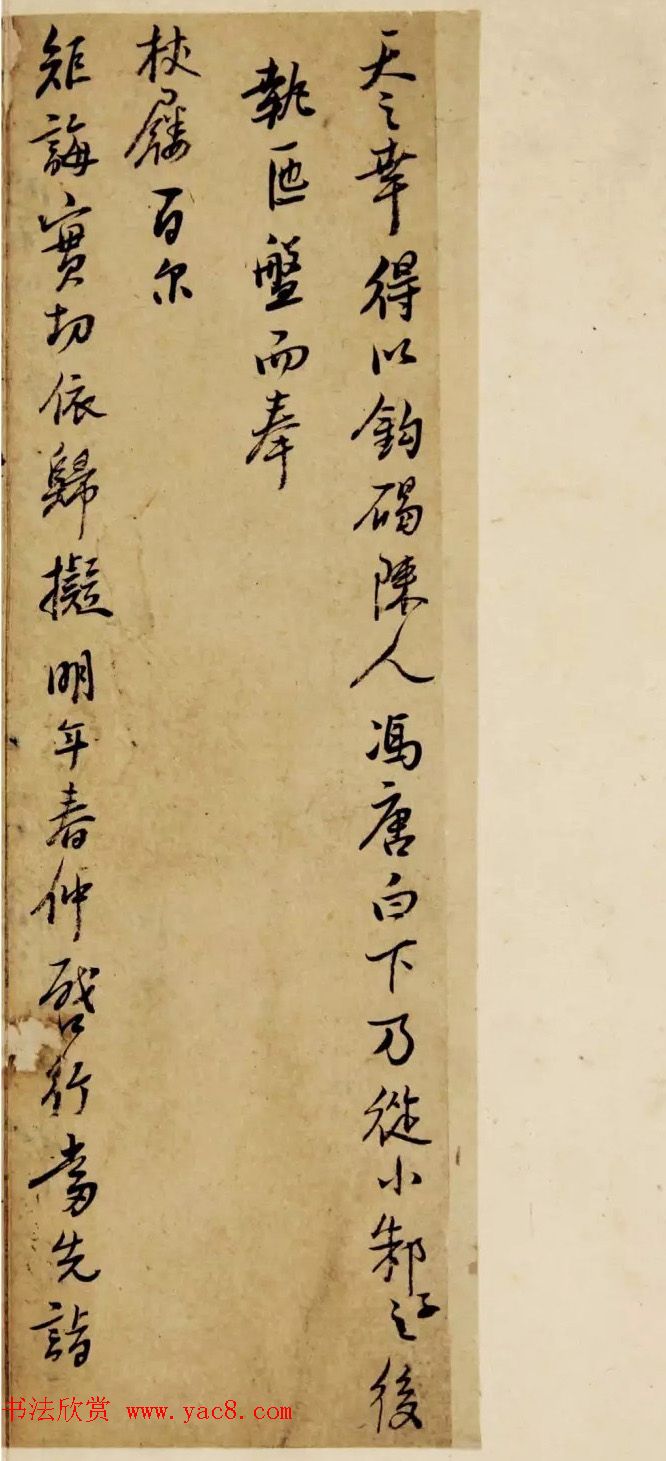 天之幸得以釣碣陳人馮唐白下乃從小邾子之後
執匜盤而奉
杖屨百尔
矩誨實切依歸擬明年春仲啓行當先詣
书法欣赏 www.yac8.com